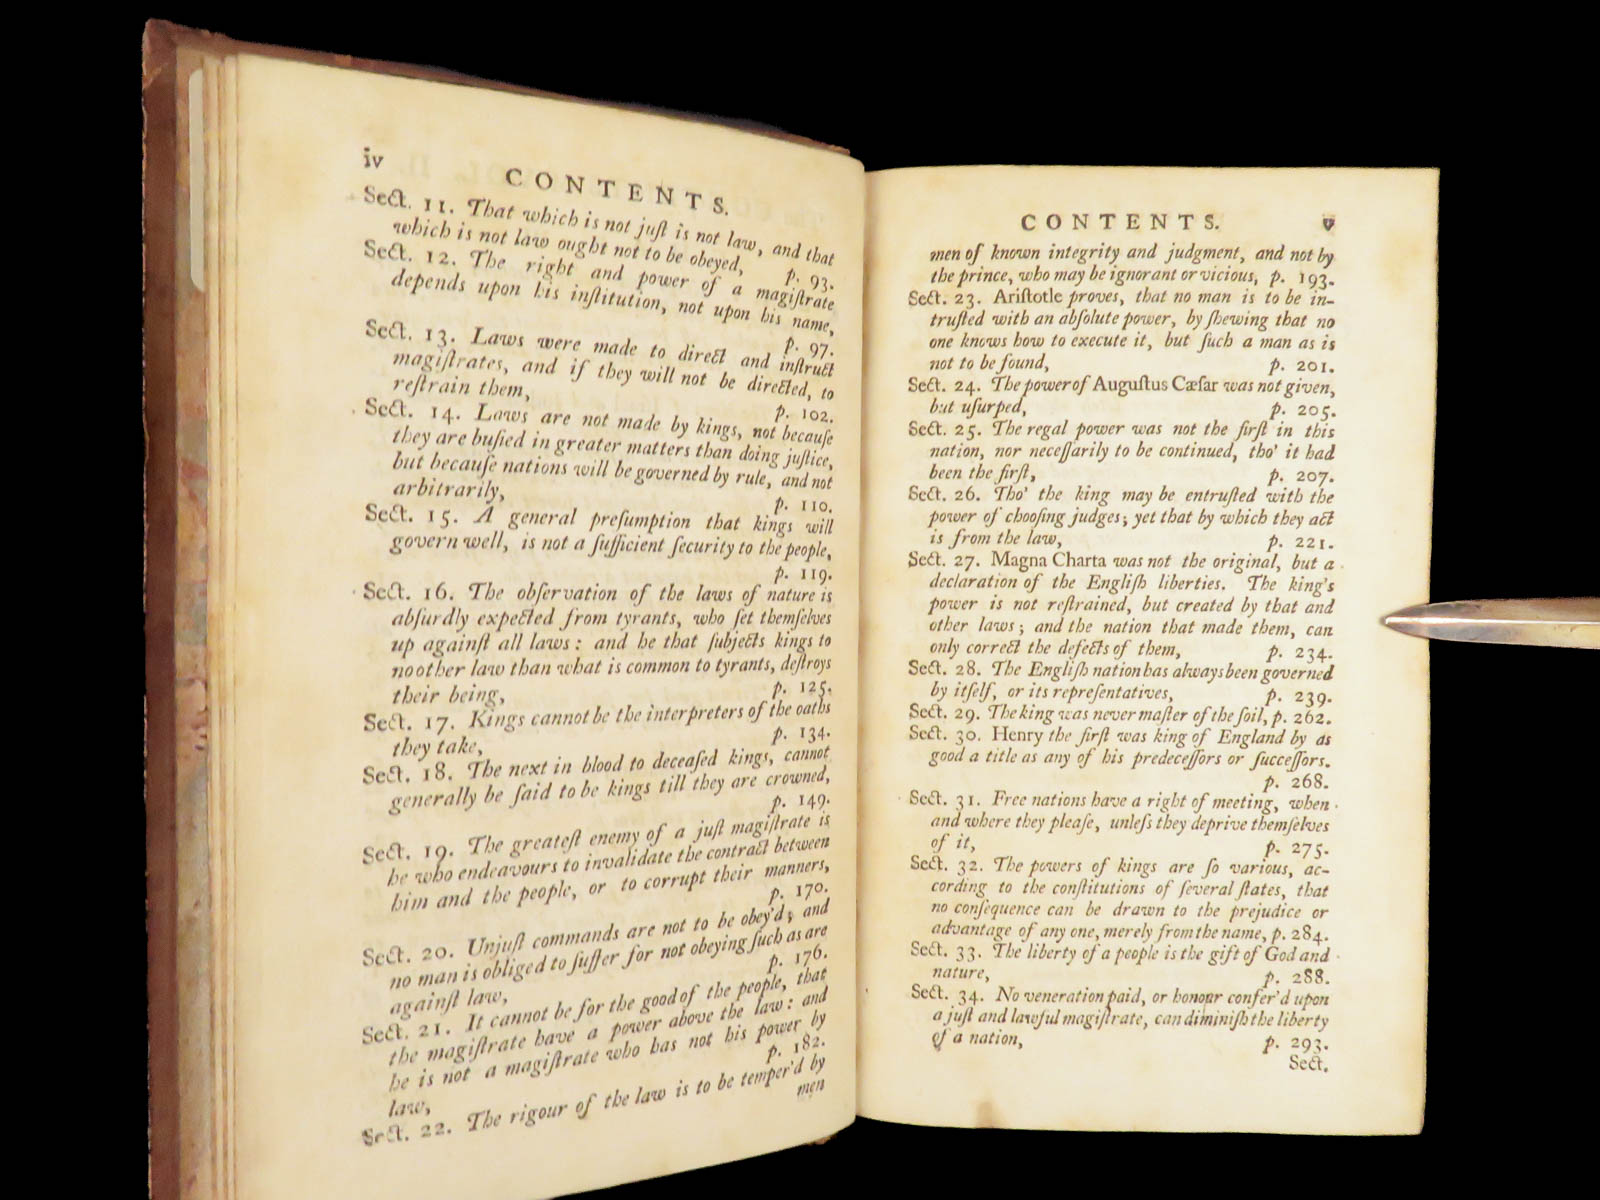 iv
CONTENTS.
Sect. 11. That which is not juſt is not law, and that
which is not law ought not to be obeyed, p. 93.
Sect. 12. The right and power of a magiſtrate
depends upon his inſtitution, not upon his name,
p. 97.
Sect. 13. Laws were made to direct and inſtruct
magiſtrates, and if they will not be directed, to
reſtrain them,
p. 102.
Sect. 14. Laws are not made by kings, not becauſe
they are buſied in greater matters than doing juſtice,
but becauſe nations will be governed by rule, and not
arbitrarily,
p. 110.
Sect. 15. A general preſumption that kings will
govern well, is not a ſufficient ſecurity to the people,
p. 119.
Sect. 16. The obſervation of the laws of nature is
abſurdly expected from tyrants, who ſet themſelves
up againſt all laws: and he that ſubjects kings to
no other law than what is common to tyrants, deſtroys
their being,
p. 125.
Sect. 17. Kings cannot be the interpreters of the oaths
they take,
p. 134.
Sect. 18. The next in blood to deceaſed kings, cannot
generally be ſaid to be kings till they are crowned,
p. 149.
Sect. 19. The greateſt enemy of a juſt magiſtrate is
he who endeavours to invalidate the contract between
him and the people, or to corrupt their manners,
p. 170.
Sect. 20. Unjuſt commands are not to be obey'd; and
no man is obliged to ſuffer for not obeying ſuch as are
againſt law,
p. 176.
Sect. 21. It cannot be for the good of the people, that
the magiſtrate have a power above the law: and
he is not a magiſtrate who has not his power by
law,
p. 182.
Sect. 22. The rigour of the law is to be temper'd by
men
CONTENTS. v
men of known integrity and judgment, and not by
the prince, who may be ignorant or vicious, p. 193.
Sect. 23. Ariſtotle proves, that no man is to be in-
truſted with an abſolute power, by ſhewing that no
one knows how to execute it, but ſuch a man as is
not to be found, p. 201.
Sect. 24. The power of Auguſtus Cæſar was not given,
but uſurped, p. 205.
Sect. 25. The regal power was not the firſt in this
nation, nor neceſſarily to be continued, tho' it had
been the firſt, p. 207.
Sect. 26. Tho' the king may be entruſted with the
power of chooſing judges; yet that by which they act
is from the law, p. 221.
Sect. 27. Magna Charta was not the original, but a
declaration of the Engliſh liberties. The king's
power is not reſtrained, but created by that and
other laws; and the nation that made them, can
only correct the defects of them, p. 234.
Sect. 28. The Engliſh nation has always been governed
by itſelf, or its repreſentatives, p. 239.
Sect. 29. The king was never maſter of the ſoil, p. 262.
Sect. 30. Henry the firſt was king of England by as
good a title as any of his predeceſſors or ſucceſſors.
p. 268.
Sect. 31. Free nations have a right of meeting, when
and where they pleaſe, unleſs they deprive themſelves
of it, p. 275.
Sect. 32. The powers of kings are ſo various, ac-
cording to the conſtitutions of ſeveral ſtates, that
no conſequence can be drawn to the prejudice or
advantage of any one, merely from the name, p. 284.
Sect. 33. The liberty of a people is the gift of God and
nature, p. 288.
Sect. 34. No veneration paid, or honour confer'd upon
a juſt and lawful magiſtrate, can diminiſh the liberty
of a nation, p. 293.
Sect.